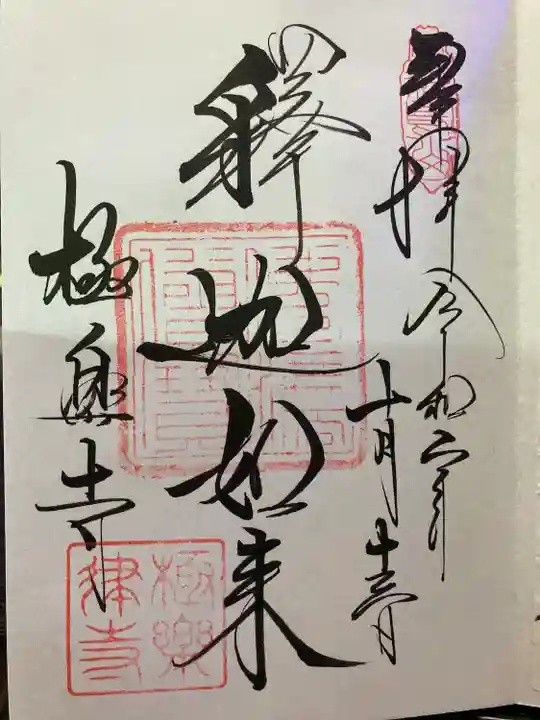 奉拝
令和六年
十月十三日
釋迦如来
極楽寺
極樂
律寺